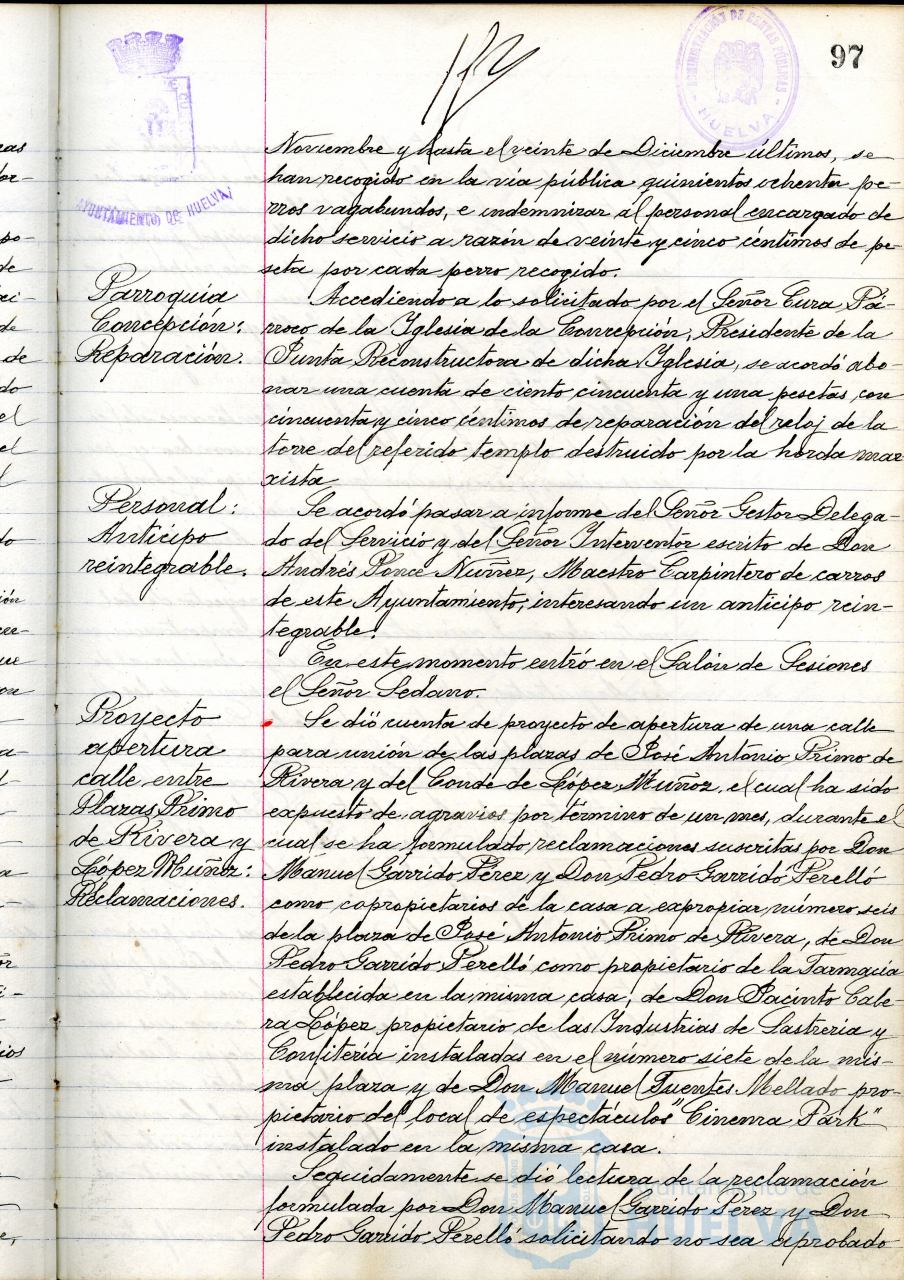 97
ADMINISTRACIÓN DE RENTAS PÚBLICAS
HUELVA
AYUNTAMIENTO DE HUELVA
Noviembre y hasta el veinte de Diciembre últimos, se
han recogido en la vía pública quinientos ochenta pe-
rros vagabundos, e indemnizar al personal encargado de
dicho servicio a razón de veinte y cinco céntimos de pe-
seta por cada perro recogido.
Parroquia
Concepción:
Reparación.
Accediendo a lo solicitado por el Señor Cura Pá-
rroco de la Iglesia de la Concepción, Presidente de la
Junta Reconstructora de dicha Iglesia, se acordó abo-
nar una cuenta de ciento cincuenta y una pesetas, con
cincuenta y cinco céntimos de reparación del reloj de la
torre del referido templo destruido por la horda mar
xista
Personal:
Anticipo
reintegrable.
Se acordó pasar a informe del Señor Gestor Delega-
do del Servicio y del Señor Interventor escrito de Don
Andrés Ponce Nuñez, Maestro Carpintero de carros
de este Ayuntamiento, interesando un anticipo rein-
tegrable.
En este momento entró en el Salón de Sesiones
el Señor Sedano.
Proyecto
apertura
calle entre
Plazas Primo
de Rivera y
López Muñoz:
Reclamaciones.
Se dió cuenta de proyecto de apertura de una calle
para unión de las plazas de José Antonio Primo de
Rivera y del Conde de López Muñoz, el cual ha sido
expuesto de agravios por término de un mes, durante el
cual se ha formulado reclamaciones suscritas por Don
Manuel Garrido Pérez y Don Pedro Garrido Perelló
como copropietarios de la casa a expropiar, número seis
de la plaza de José Antonio Primo de Rivera, de Don
Pedro Garrido Perelló como propietario de la Farmacia
establecida en la misma casa; de Don Jacinto Cabe-
ra López propietario de las Industrias de Sastrería y
Confitería instaladas en el número siete de la mis-
ma plaza y de Don Manuel Fuentes Mellado pro-
pietario del local de espectáculos "Cinema Park"
instalado en la misma casa.
Seguidamente se dió lectura de la reclamación
formulada por Don Manuel Garrido Pérez y Don
Pedro Garrido Perelló solicitando no sea aprobado
Ayuntamiento de
HUELVA